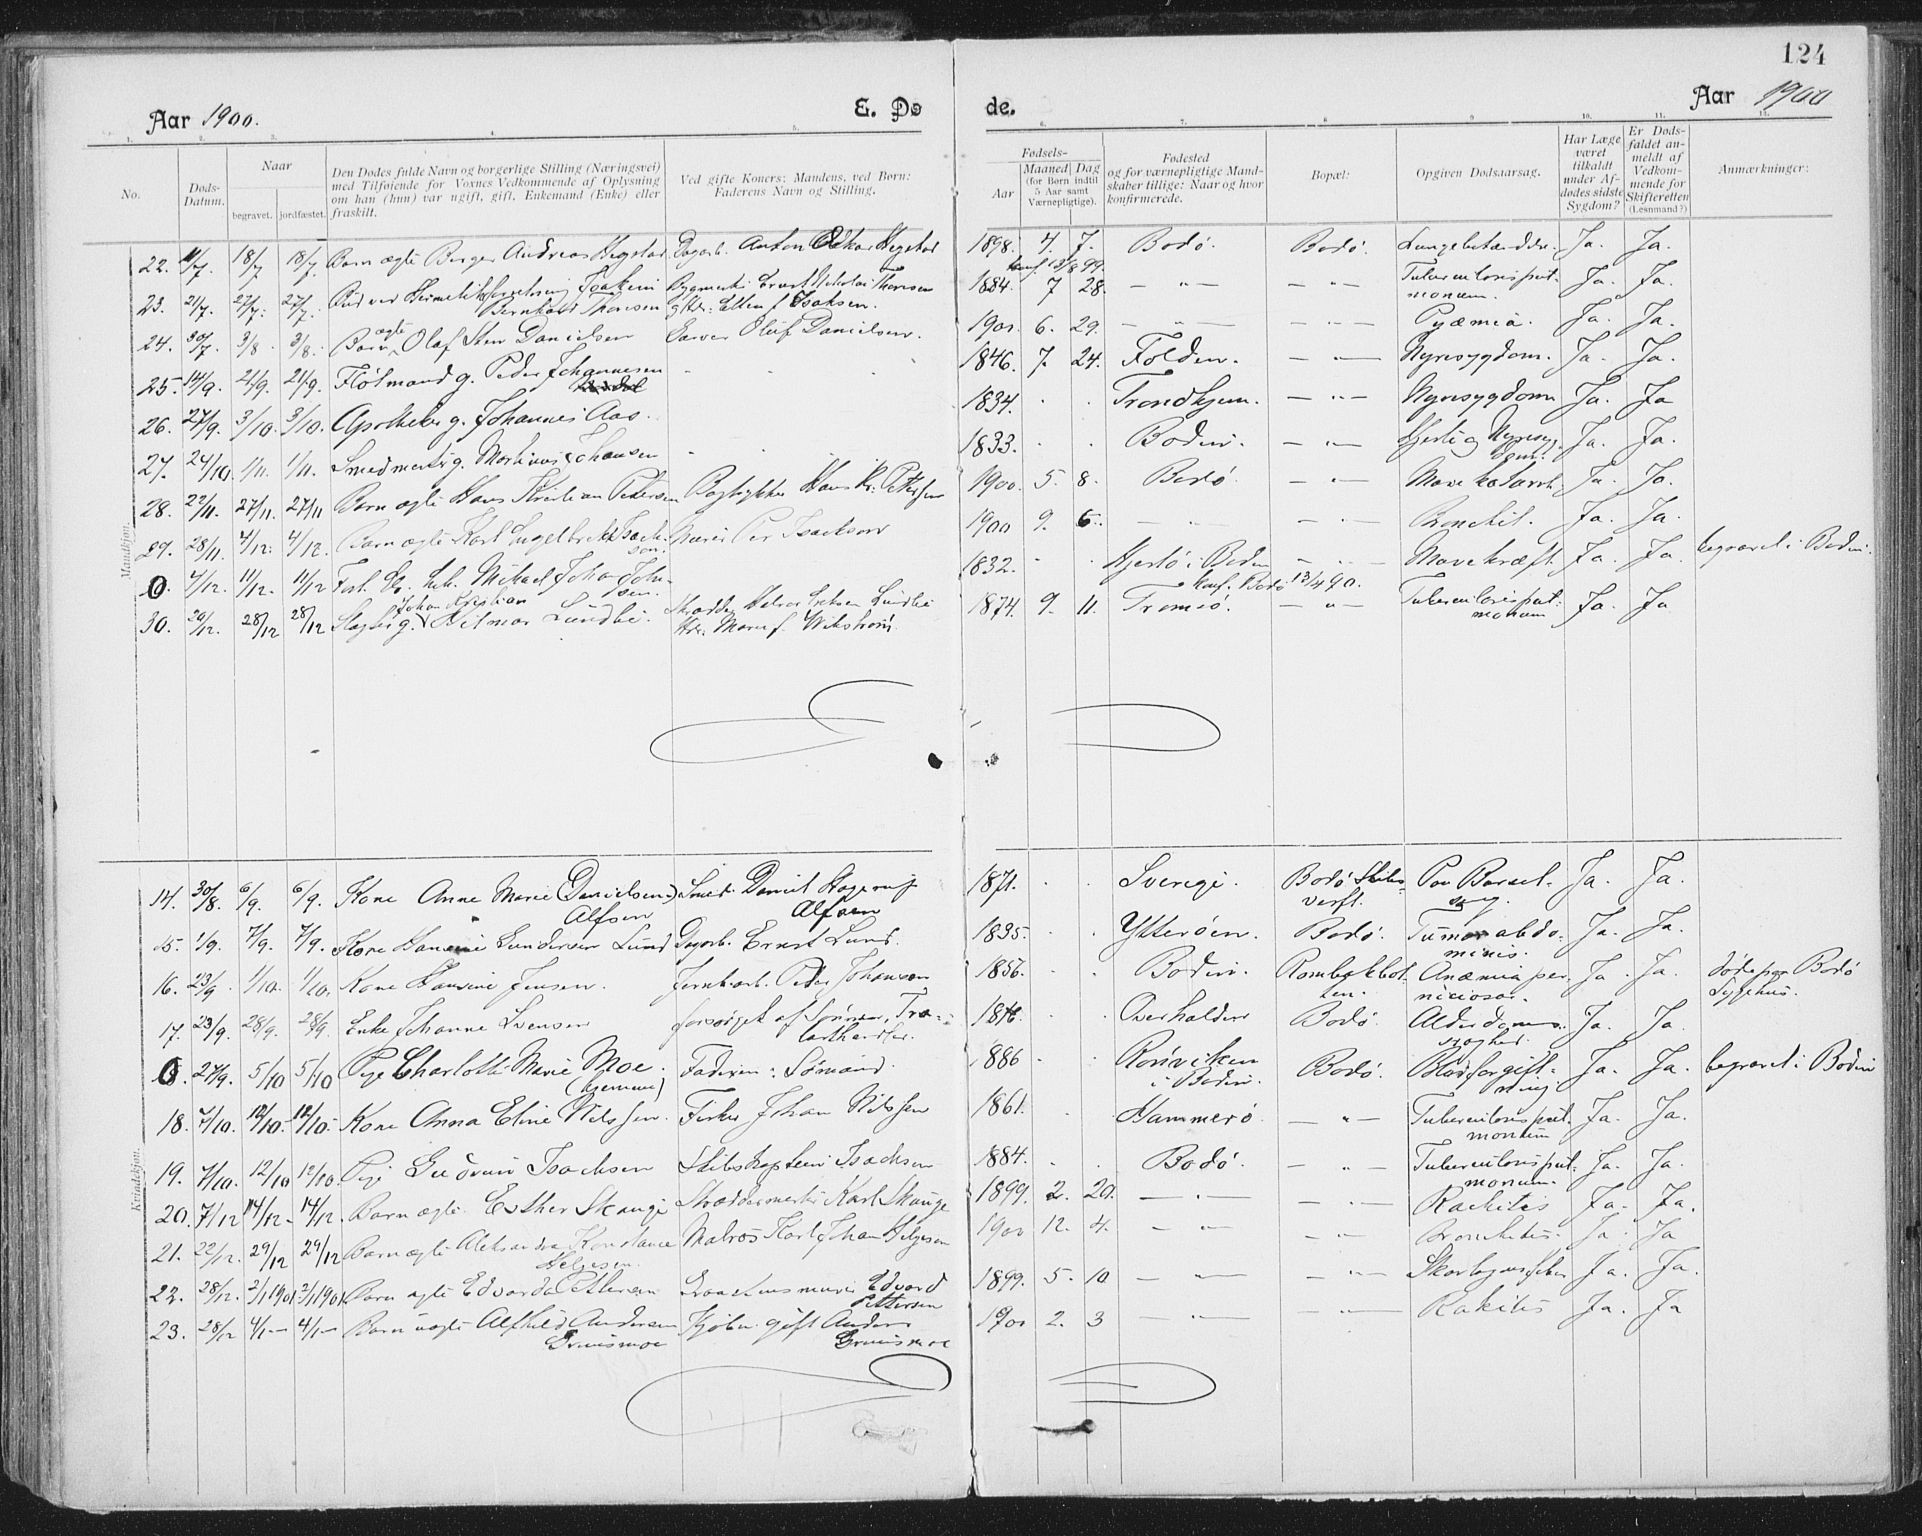 124
Aar 1900.
E. Dø
de.
Aar 1900
1. 2. 3. 4. 5. 6. 7. 8. 9. 10. 11. 12.
No.
Døds-
Datum.
Naar
begravet. jordfæstet.
Den Dødes fulde Navn og borgerlige Stilling (Næringsvei)
med Tilføiende for Voxnes Vedkommende af Oplysning
om han (hun) var ugift, gift, Enkemand (Enke) eller
fraskilt.
Ved gifte Koner: Mandens, ved Børn:
Faderens Navn og Stilling.
Fødsels-
Aar Maaned Dag
(for Børn indtil
5 Aar samt
Værnepligtige).
Fødested
og for værnepligtige Mand-
skaber tillige: Naar og hvor
konfirmerede.
Bopæl:
Opgiven Dødsaarsag.
Har Læge
været
tilkaldt
under Af-
dødes sidste
Sygdom?
Er Døds-
faldet an-
meldt af
Vedkom-
mende for
Skifteretten
(Lensmand?)
Anmærkninger:
Mandkjøn.
22. 11/7. 18/7 18/7. Barn ægte Berger Andreas Hegstad Dagarb. Anton Hegstad 1898. 4. 7. Bodø. Bodø. Lungebetændelse. Ja. Ja.
23. 21/7. 27/7. 27/7. Joakim
Bernhard Thoresen Ernst Nikolai Thoresen
1884. 7 28. — „ — — „ — Tuberculosis pul-
monum. Ja. Ja.
24. 30/7. 3/8. 3/8. Barn ægte Olaf Sten Danielsen Garver Oluf Danielsen. 1900. 6. 29. — „ — — „ — Pyæmia. Ja. Ja.
25. 14/9. 21/9. 21/9. g. Peder Johannesen 1846. 7. 24. Folden. — „ — Nyresygdom. Ja. Ja.
26. 27/9. 3/10. 3/10. Apotheker g. Johannes Aas. 1834. Trondhjem. — „ — Nyresygdom Ja. Ja
27. 24/10. 1/11. 1/11. Smedmester g. Johansen 1833. Bodin. — „ — Hjerte og Nyresyg-
dom. Ja. Ja.
28. 22/11. 27/11. 27/11 Barn ægte Hans Kristian Petersen Hans Kr. Pettersen 1900. 5. 8. Bodø. — „ — Mavekatarrh. Ja. Ja.
29. 28/11. 4/12. 4/12. Barn ægte Karl Engelbrekt Isack-
sen. Per Isacksen 1900 9. 6. — „ — — „ — Bronchit. Ja. Ja.
0. 7/12. 11/12. 11/12 Mikael Johan John-
sen. 1832. Hjertø i Bodin — „ — Mavekræft. Ja. Ja. begravet i Bodin.
30. 20/12. 28/12 28/12 g. Johan Kristian Hilmar Lundbi. Skrædder Lundbi
Wikstrøm. 1874. 9. 11. Tromsø. konf. Bodø 13/4 90. — „ — Tuberculosis pul-
monum Ja. Ja
Kvindekjøn.
14. 30/8. 6/9. 6/9. Kone Anne Marie Danielsen
Alfsen Smed Daniel Hagerup
Alfsen 1871. Sverige. Bodø Skibs-
verft. Barsel-
seng. Ja. Ja.
15. 1/9. 7/9. 7/9. Kone Gundersen Lund Dagarb. Ernst Lund. 1835. Ytterøen. Bodø. Tumor abdo-
minis. Ja. Ja.
16. 23/9 1/10. 1/10. Kone Hansine Jensen. Jernb.arb. Peder Johansen Bodin. Rombakbot-
ten. Anæmia per-
niciosa. Ja. Ja. døde paa Bodø
Sygehus.
17. 23/9. 28/9. 28/9. Enke Johanne Svensen forsørget af Sønnen, Tra-
Overhalden Bodø. Alderdoms-
svaghed. Ja. Ja.
0. 27/9. 5/10 5/10 Pige Charlotte Marie Moe.
(hjemme) Faderen: Sømand. 1886 Rønviken
i Bodin. Bodø. Blodforgift-
ning Ja. Ja. begravet i Bodin
18. 7/10. 12/10. 12/10. Kone Anna Eline Nilssen. Fisker Johan Nilssen 1861. Hammerø. — „ — Tuberculosis pul-
monum Ja. Ja.
19. 7/10. 12/10 12/10. Pige Gudrun Isachsen Skibskaptein Isachsen 1884. Bodø. — „ — Tuberculosis pul-
monum. Ja. Ja.
20. 7/12 14/12. 14/12. Barn ægte Esther Skauge Skræddermester Karl Skauge 1899. 2. 20. — „ — — „ — Rachitis Ja. Ja.
21. 22/12. 29/12 29/12 Barn ægte Aleksandra Konstance
Helgesen. Matros Karl Johan Helgesen 1900 12. 4. — „ — — „ — Bronchitis. Ja. Ja
22. 28/12. 2/1 1901 2/1 1901. Barn ægte Edvarda Pettersen Edvard
Pettersen 1899. 5. 10 — „ — — „ — Skarlagensfeber Ja. Ja.
23. 28/12 4/1 — 4/1 — Barn uægte Alfhild Andersen
Gruismoe Kjøbm. gift Anders
Gruismoe 1900 2. 3 — „ — — „ — Rakitis Ja. Ja